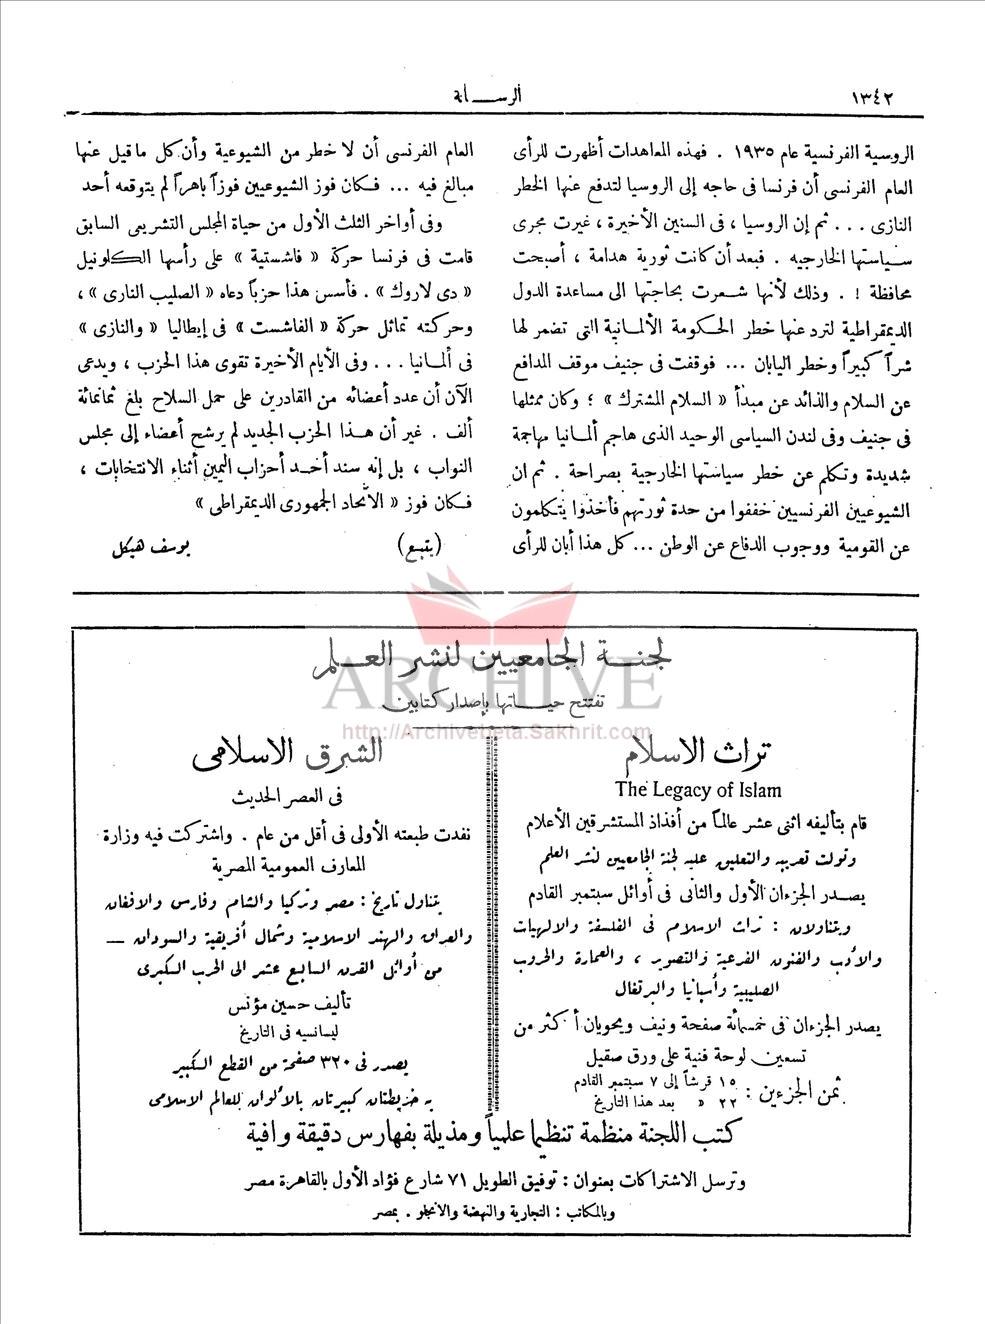 ١٣٤٢
الرســـالة
الروسية الفرنسية عام ١٩٣٥ . فهذه المعاهدات أظهرت للرأى
العام الفرنسى أن فرنسا فى حاجه إلى الروسيا لتدفع عنها الخطر
النازى . . . ثم إن الروسيا ، فى السنين الأخيرة ، غيرت مجرى
سياستها الخارجيه . فبعد أن كانت ثورية هدامة ، أصبحت
محافظة ! . وذلك لأنها شعرت بحاجتها الى مساعدة الدول
الديمقراطية لترد عنها خطر الحكومة الألمانية التى تضمر لها
شراً كبيراً وخطر اليابان ... فوقفت فى جنيف موقف المدافع
عن السلام والذائد عن مبدأ « السلام المشترك » ؛ وكان ممثلها
فى جنيف وفى لندن السياسى الوحيد الذى هاجم ألمانيا مهاجمة
شديدة وتكلم عن خطر سياستها الخارجية بصراحة . ثم ان
الشيوعيين الفرنسيين خففوا من حدة ثورتهم فأخذوا يتكلمون
عن القومية ووجوب الدفاع عن الوطن ... كل هذا أبان للرأى
العام الفرنسى أن لا خطر من الشيوعية وأن كل ما قيل عنها
مبالغ فيه ... فكان فوز الشيوعيين فوزاً باهراً لم يتوقعه أحد
وفى أواخر الثلث الأول من حياة المجلس التشريعى السابق
قامت فى فرنسا حركة « فاشستية » على رأسها الكلونيل
« دى لاروك » . فأسس هذا حزباً دعاه « الصليب النارى » ،
وحركته تماثل حركة « الفاشست » فى إيطاليا « والنازى »
فى ألمانيا . . . وفى الأيام الأخيرة تقوى هذا الحزب ، ويدعى
الآن أن عدد أعضائه من القادرين على حمل السلاح بلغ ثمانمائة
ألف . غير أن هذا الحزب الجديد لم يرشح أعضاء إلى مجلس
النواب ، بل إنه سند أحد أحزاب اليمين أثناء الانتخابات ،
فكان فوز « الاتحاد الجمهورى الديمقراطى »
(يتبع) يوسف هيكل
لجنة الجامعيين لنشر العلم
تفتتح حياتها بإصدار كتابين
ARCHIVE
http://Archivebeta.Sakhrit.com
تراث الاسلام
The Legacy of Islam
قام بتأليفه اثنى عشر عالماً من أفذاذ المستشرقين الأعلام
وتولت تعريبه والتعليق عليه لجنة الجامعيين لنشر العلم
يصدر الجزءان الأول والثانى فى أوائل سبتمبر القادم
ويتناولان : تراث الاسلام فى الفلسفة والالهيات
والأدب والفنون الفرعية والتصوير ، والعمارة والحروب
الصليبية وأسبانيا والبرتغال
يصدر الجزءان فى خمسمائة صفحة ونيف ويحويان أكثر من
تسعين لوحة فنية على ورق صقيل
ثمن الجزءين :
١٥ قرشاً إلى ٧ سبتمبر القادم
٢٢ » بعد هذا التاريخ
الشرق الاسلامى
فى العصر الحديث
نفدت طبعته الأولى فى أقل من عام . واشتركت فيه وزارة
المعارف العمومية المصرية
يتناول تاريخ : مصر وتركيا والشام وفارس والافغان
والعراق والهند الاسلامية وشمال أفريقية والسودان —
من أوائل القرن السابع عشر الى الحرب الكبرى
تأليف حسين مؤنس
ليسانسيه فى التاريخ
يصدر فى ٣٢٠ صفحة من القطع الكبير
به خريطتان كبيرتان بالألوان للعالم الاسلامى
كتب اللجنة منظمة تنظيما علمياً ومذيلة بفهارس دقيقة وافية
وترسل الاشتراكات بعنوان : توفيق الطويل ٧١ شارع فؤاد الأول بالقاهرة مصر
وبالمكاتب : التجارية والنهضة والانجلو . بمصر